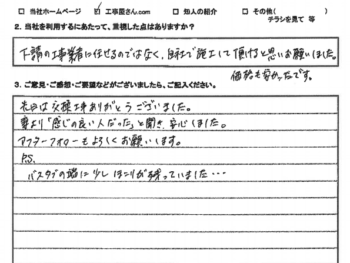 □ 当社ホームページ ☑ 工事屋さん.com □ 知人の紹介 □ その他(
チラシを見て 等
2. 当社を利用するにあたって、重視した点はありますか?
下請の工事業者に任せるのではなく、自社で施工して頂けると思いお願いしました。
価格も安かったです。
3. ご意見・ご感想・ご要望などがございましたら、ご記入ください。
先日は交換工事ありがとうございました。
妻より「感じの良い人だった」と聞き、安心しました。
アフターフォローもよろしくお願いします。
P.S.
バスタブの端に少しほこりが残っていました・・・